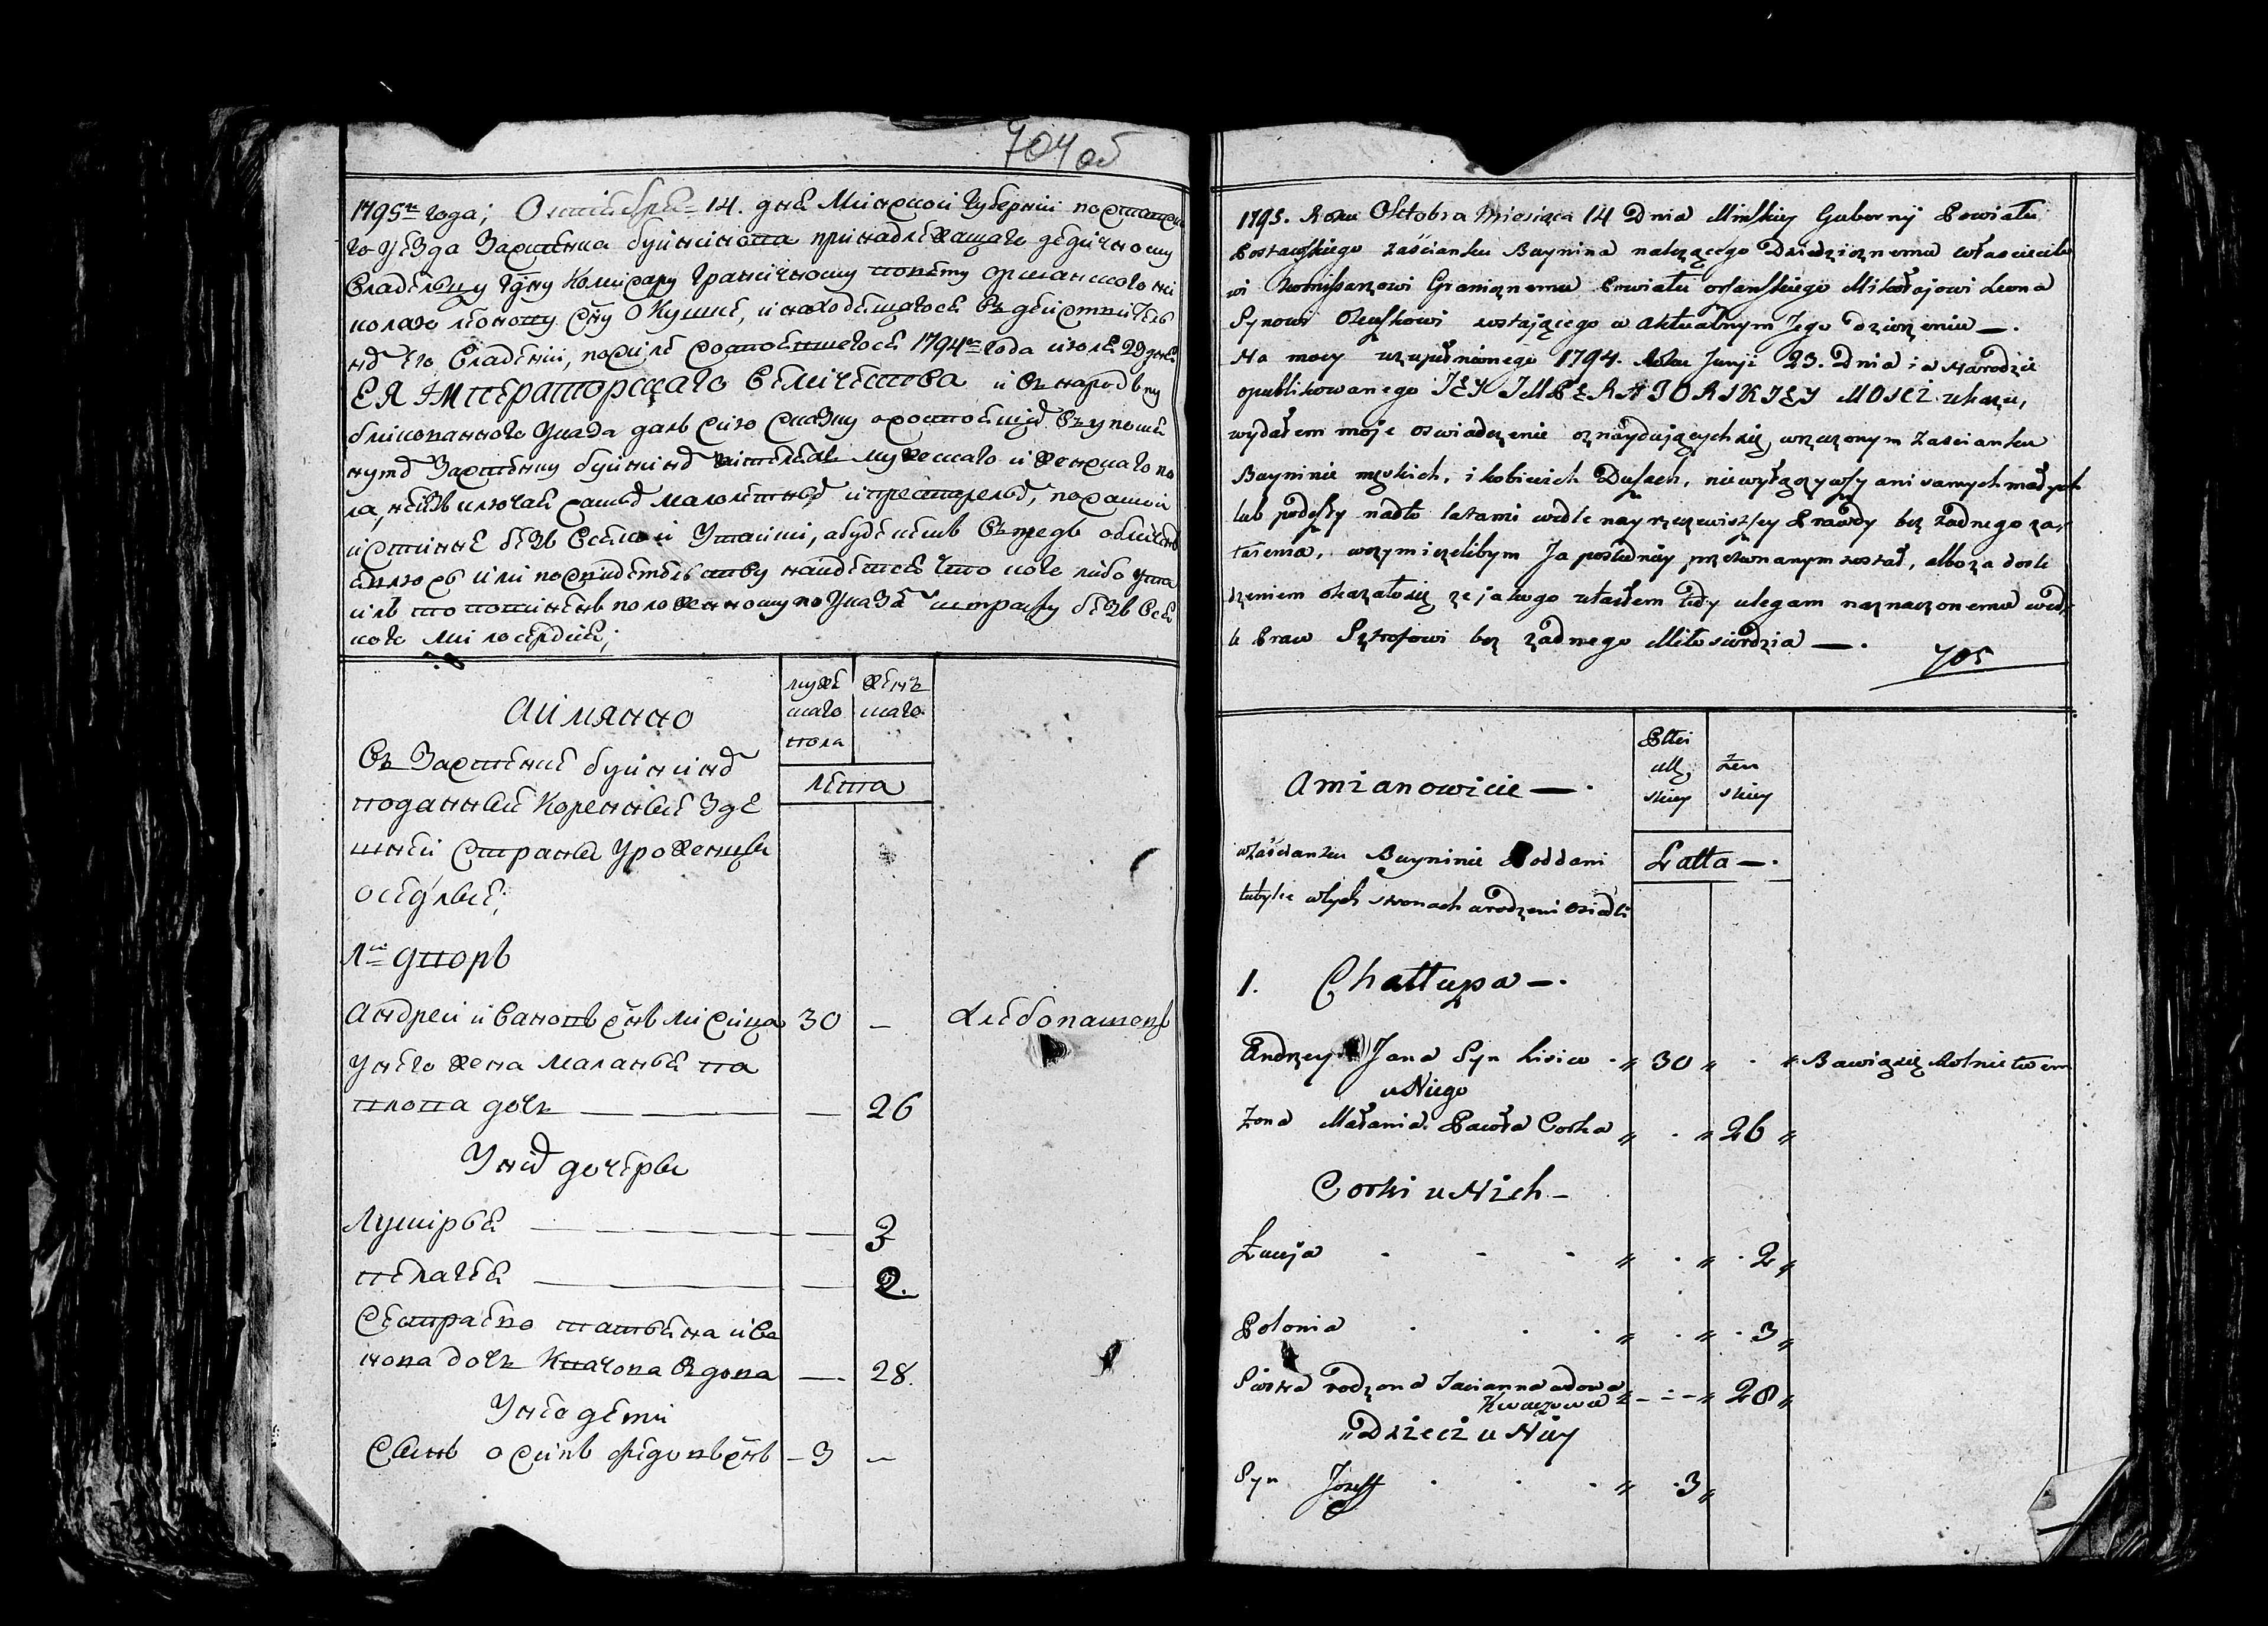 704 об
1795го года; Октября 14. дня Минской Губернии поставско
го уезда Застенка буйнинопа принадлежащаго дедичному
Владельцу Гдну Комисару Граничному попету оршанского ни
колаю леонову сну Окушке, и находещагосе въ действитель
но его Владении, посиле состоепшегосе 1794го года июля 23 дня
ЕЯ ИМператорскаго Величества и въ народъ пу
бликопаннаго Указа далъ сию сказку осостоещих въупомя
нутом Застенку буйнинд жителех мужескаго и женскаго по
ла, неизъключая самых малолетных и престарелых, посамой
истинне безъ всякой Утайки, а буде кемъ въпредь обличенъ
или посвидетельству найдется что кого либо ута
илъ то повиненъ положенному по Указу штрафу безъ вся
кого милосердия;
аимянно
муже
скаго
пола
женъ
скаго.
лета
Въ Застенке буйнинд
поданные Коренные Зде
шней Страны Уроженцы
оседлые;
1й дворъ
Андрей ивановъ снъ лисица 30 — Хлебопашец
Унего жена маланья па
влова дочь — 26
Уних дочери
Лукирья — 3
пелагея — 2.
Сестра ево татьяна ива
нова дочь Квачова вдова — 28.
Унее дети
Сынъ осипъ федоровъ снъ — 3 —
1795. Roku Oktobra Miesiąca 14 Dnia Minskiey Gubernij Powiatu
Postawskiego zaścianku Buynina należącego Dziedzicznemu właścicielo
wi Kommissarzowi Granicznemu Powiatu orszanskiego Mikołajowi Leona
Synowi Okuszkowi zostającego w Aktualnym Jego dzierzeniu —.
Na mocy uzupełnionego 1794. Roku Junji 23. Dnia i w Narodzie
opublikowanego JEY IMPERATORSKIEY MOSCI ukazu,
wydałem moje oswiadczenie oznaydujących się wrzeczonym Zascianku
Buyninie męskich, i kobiecich Duszach, niewyłączywszy ani samych małych
lub podeszły nadto latami wedle nayrzeczewistszey Prawdy bez żadnego za,
tajenia, wczym jezelibym Ja posledniey przekonanym został, albo za dosle
dzeniem okazałosię ze ja kogo utaiłem tedy ulegam naznaczonemu wed,
le Praw Sztrofowi bez żadnego Miłosierdzia —.
705
Amianowicie —.
Płci
Mę,
skiey
żen
skiey
Latta —.
wzaścianku Buyninie Poddani
tubylce wtych stronach urodzeni osiedli
1. Chałtupa —.
Andrzey Jana Syn Lisica „ 30 „ . „ Bawiąsię Rolnictwem
uNiego
Żona Małania Pawła Corka „ . „ 26 „
Corki u Nich —
Łucja „ . „ 2 „
Polonia „ . „ 3 „
Siostra rodzona Tacianna wdowa
Kwaczowa „ 28 „
„Dzieci u Niey
Syn Jozeff „ 3 „